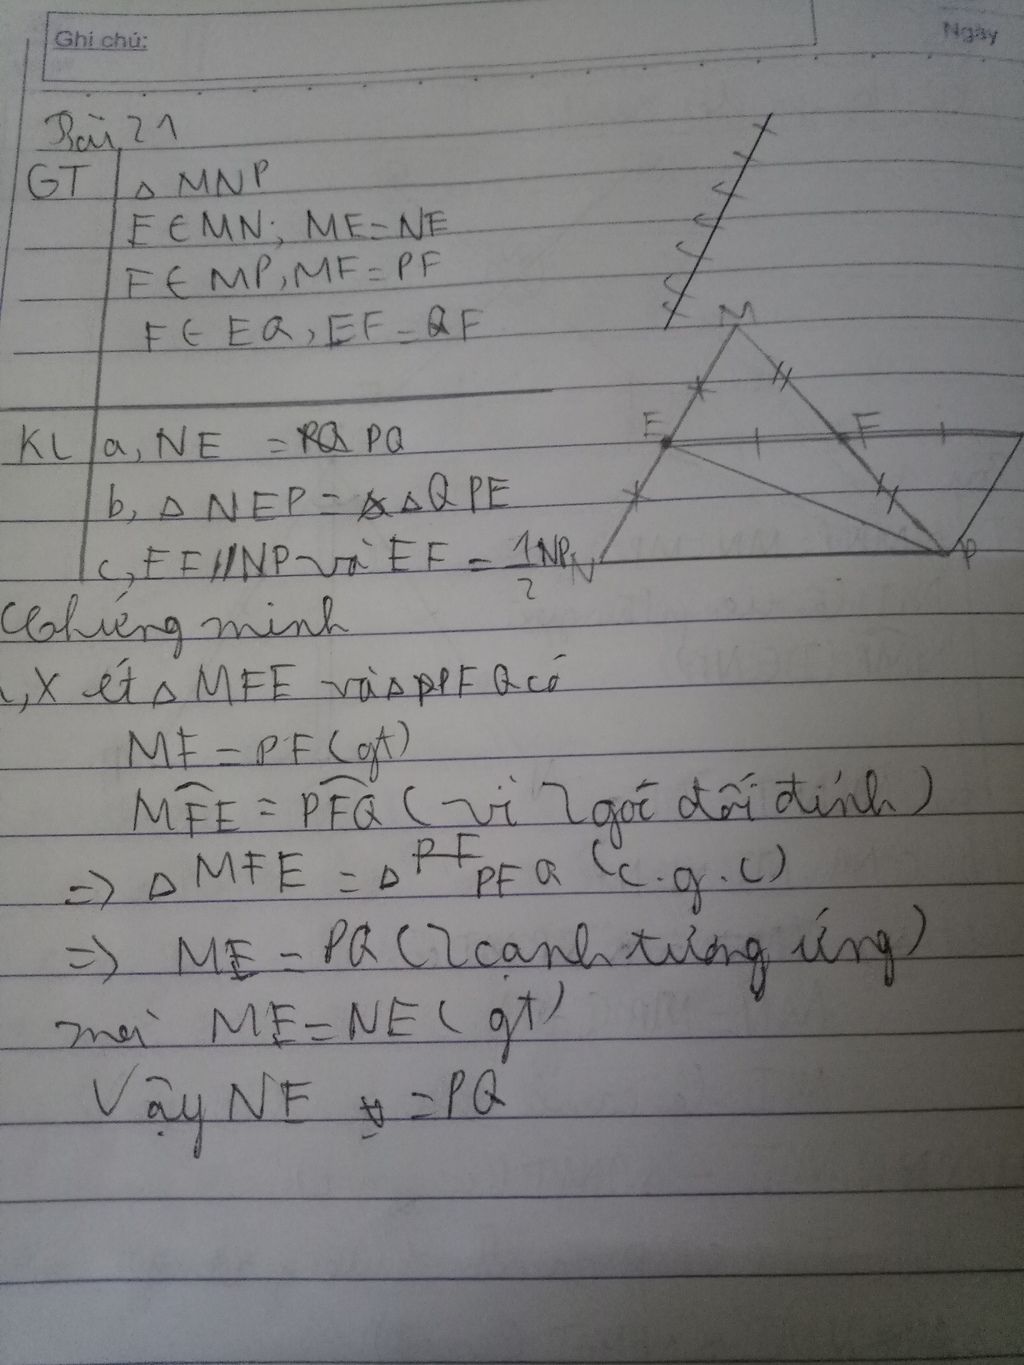 Ghi chú:
Ngày
Bài 21
GT Δ MNP
E ∈ MN; ME = NE
F ∈ MP, MF = PF
F ∈ EQ, EF = QF
KL a, NE = PQ
b, Δ NEP = Δ QPE
c, EF // NP và EF = 1/2 NP
M
E
F
N
P
Chứng minh
, Xét Δ MFE và Δ PFQ có
MF = PF (gt)
MFE = PFQ (vì 2 goc đối đỉnh)
=> Δ MFE = Δ PFQ (c.g.c)
=> ME = PQ (2 cạnh tương ứng)
mà ME = NE (gt)
Vậy NE = PQ